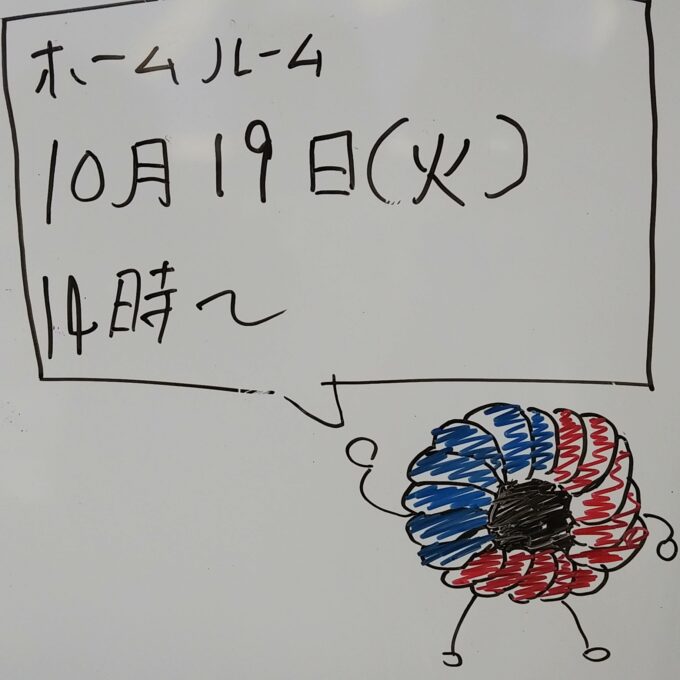 ホームルーム
10月19日(火)
14時〜